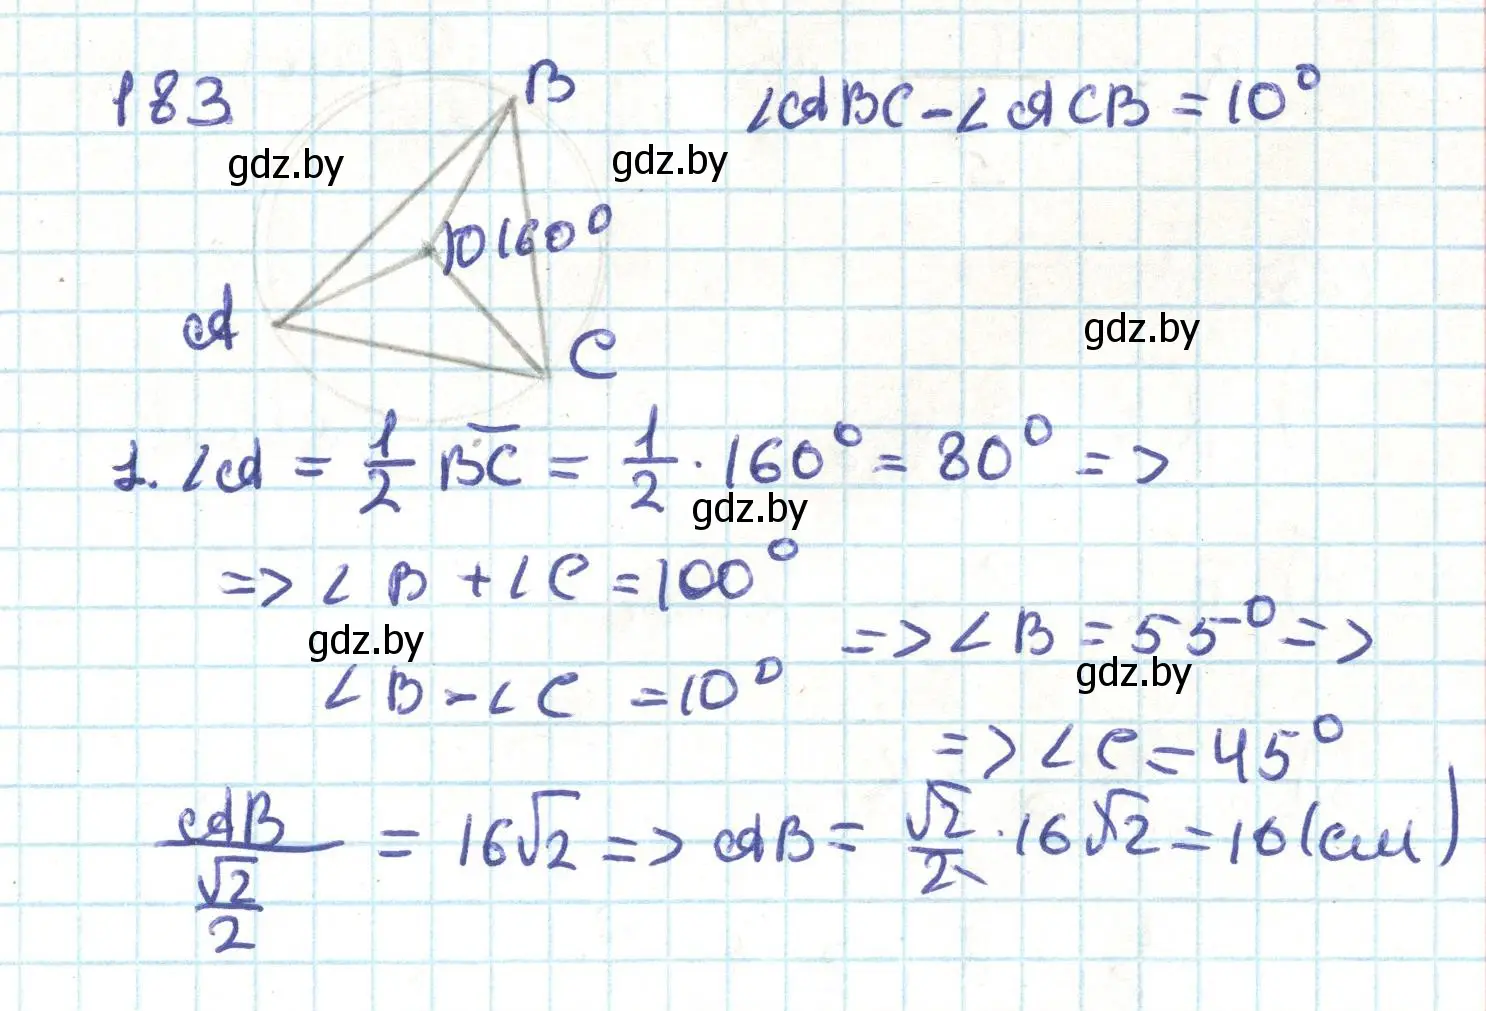 183
B
∠ABC - ∠ACB = 10°
gdz.by
gdz.by
O 160°
A
C
gdz.by
1. ∠A = 1/2 BC = 1/2 · 160° = 80° =>
gdz.by
=> ∠B + ∠C = 100°
gdz.by
=> ∠B = 55° =>
∠B - ∠C = 10°
gdz.by
=> ∠C = 45°
AB / (√2/2) = 16√2 => AB = √2/2 · 16√2 = 16 (см)